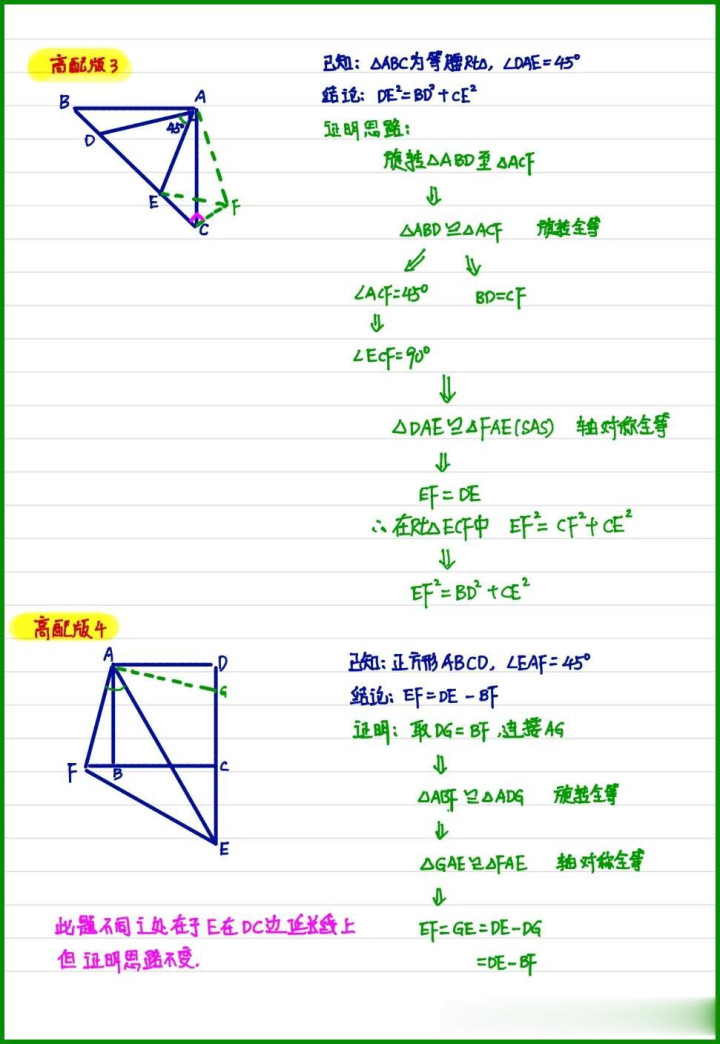 高配版3
已知: △ABC为等腰Rt△, ∠DAE=45°
结论: DE²=BD²+CE²
证明思路:
旋转△ABD至△ACF
⇓
△ABD≌△ACF 旋转全等
⇙ ⇘
∠ACF=45° BD=CF
⇓
∠ECF=90°
⇓
△DAE≌△FAE(SAS) 轴对称全等
⇓
EF=DE
∴在Rt△ECF中 EF²=CF²+CE²
⇓
EF²=BD²+CE²
B
A
D
45°
E
F
C
高配版4
已知:正方形ABCD, ∠EAF=45°
结论: EF=DE-BF
证明: 取DG=BF,连接AG
⇓
△ABF≌△ADG 旋转全等
⇓
△GAE≌△FAE 轴对称全等
⇓
EF=GE=DE-DG
=DE-BF
A
D
G
F
B
C
E
此题不同之处在于E在DC边延长线上
但证明思路不变.